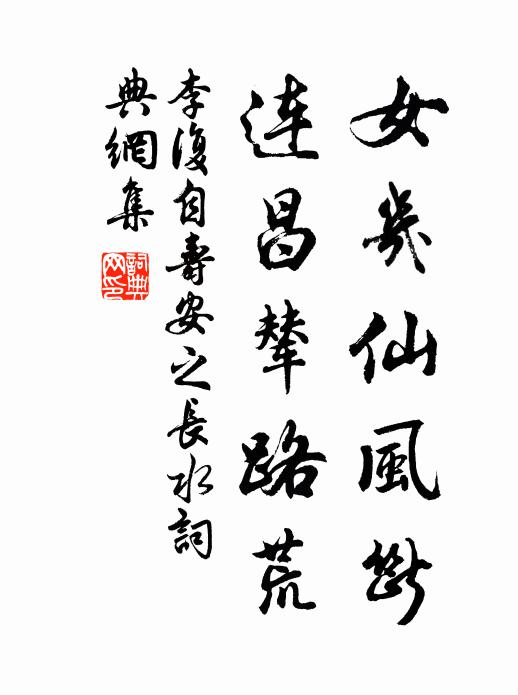 女几仙風斷
連昌輦路荒
李復自壽安之長水詞
典網集
詞典网印